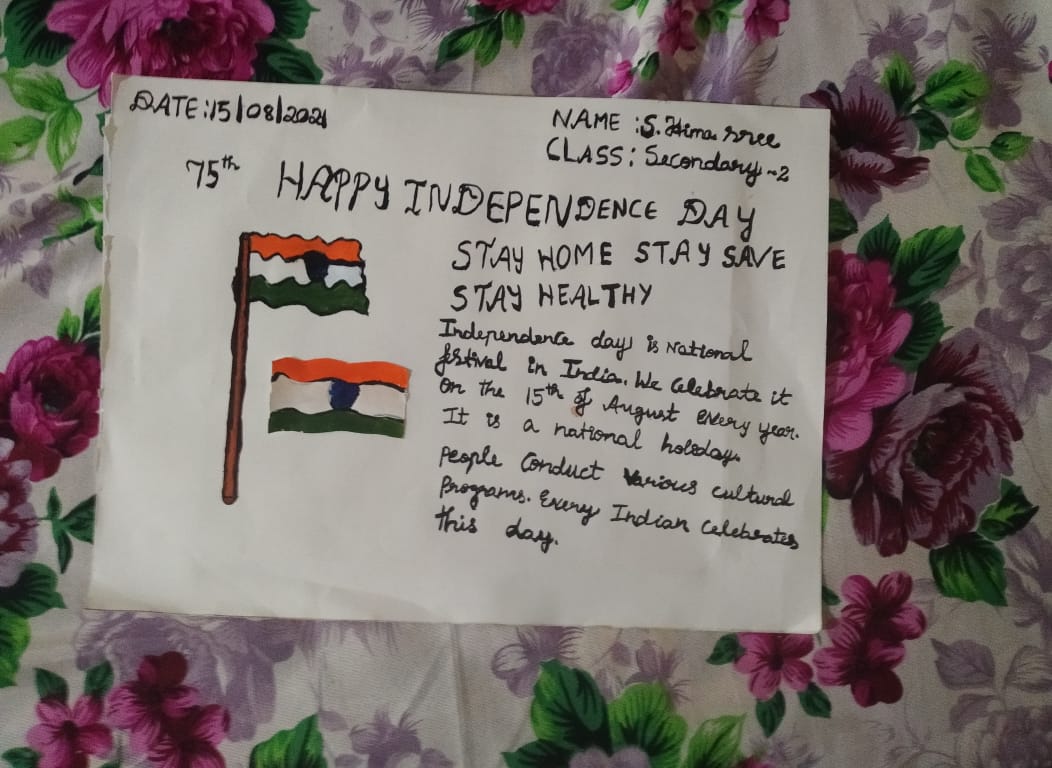 DATE:15/08/2021
NAME :S. Hima sree
CLASS: Secondary-2
75th HAPPY INDEPENDENCE DAY
STAY HOME STAY SAVE
STAY HEALTHY
Independence day is National
festival in India. We Celebrate it
On the 15th of August every year.
It is a national holiday.
People Conduct Various cultural
Programs. Every Indian Celebrates
this day.